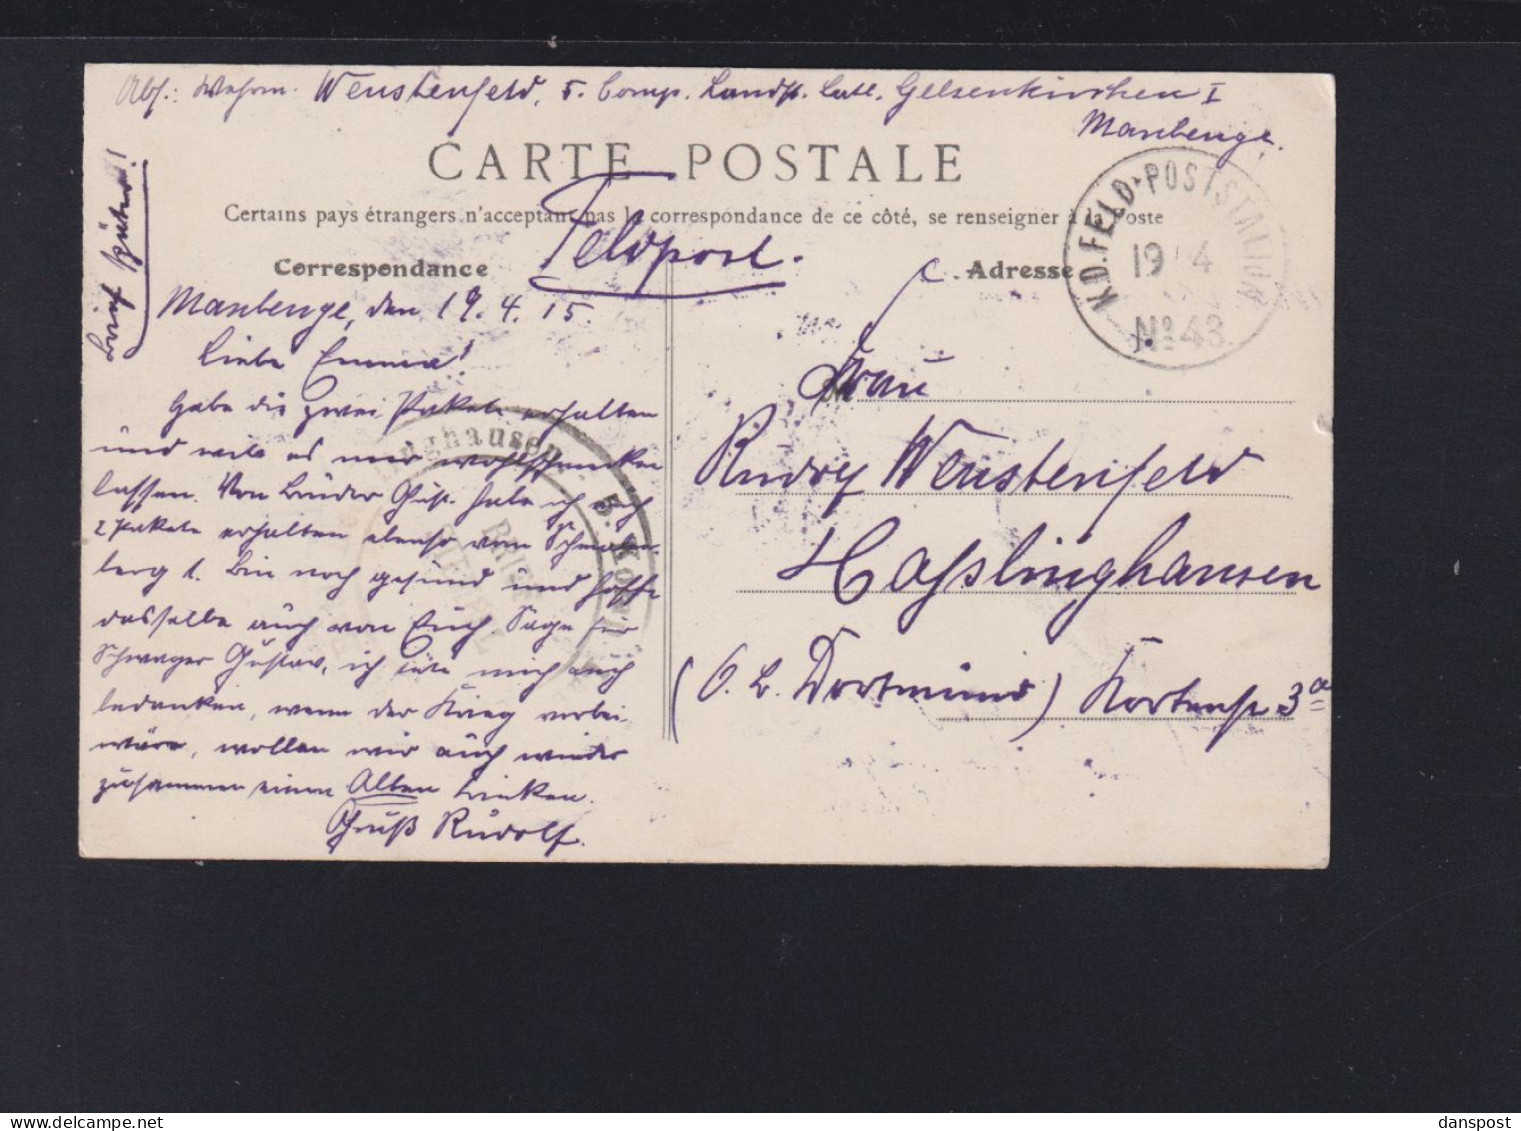 Abs.: Wehrm. Weustenfeld, 5. Comp. Landst. Batl. Gelsenkirchen I
Maubeuge.
CARTE POSTALE
Certains pays étrangers n'acceptant pas la correspondance de ce côté, se renseigner à la Poste
Feldpost.
Correspondance
Adresse
K.D. FELD-POSTSTATION
19 4
No 43
Brief später!
Maubeuge, den 19. 4. 15.
Liebe Emma!
Habe die zwei Pakete erhalten
und will es mir wohlschmecken
lassen. Von Bruder Gust. habe ich auch
2 Pakete erhalten ebenso von
berg 1. Bin noch gesund und hoffe
dasselbe auch von Euch. Sage für
Schwager Gustav, ich mich auch
bedanken, wenn der Krieg vorbei
wäre, wollen wir auch wieder
zusammen einen Alten trinken.
Gruß Rudolf.
Frau
Rudolf Weustenfeld
Hasslinghausen
(O. B. Dortmund) Kortenstr 3a
ghausen
5. Komp
danspost